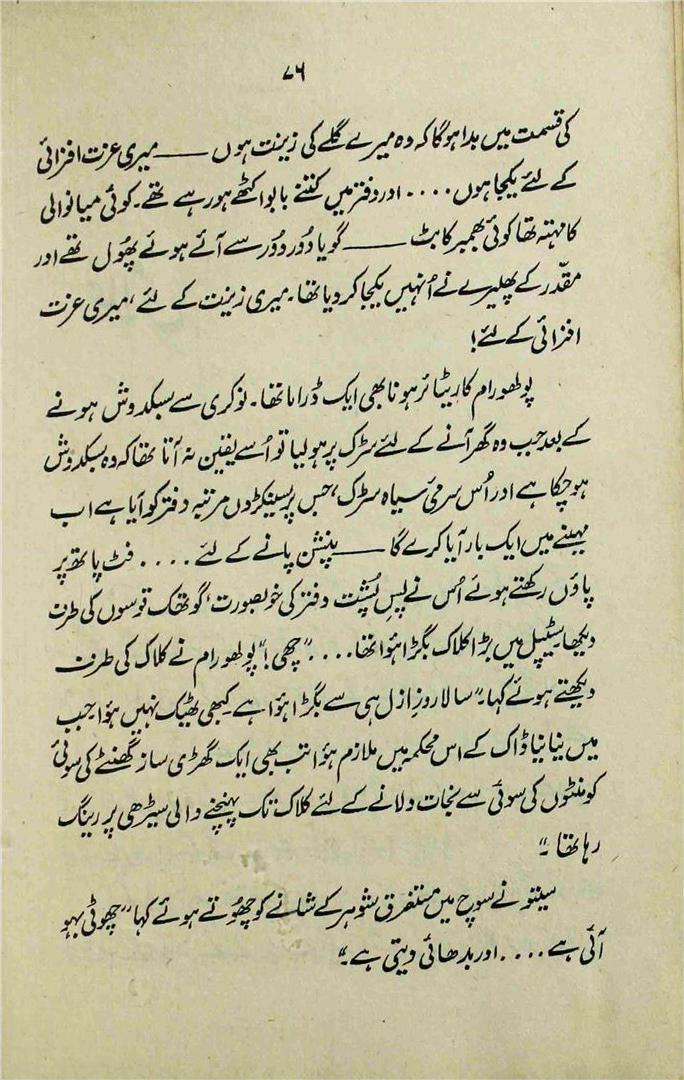 ۷۶
کی قسمت میں بدا ہوگا کہ وہ میرے گلے کی زینت ہوں —— میری عزت افزائی
کے لئے یکجا ہوں .... اور دفتر میں کتنے بابو اکٹھے ہو رہے تھے۔ کوئی میانوالی
کا مہتہ تھا کوئی بھمبر کا بٹ —— گویا دُور دور سے آئے ہوئے پھُول تھے اور
مقدّر کے پھلیرے نے اُنہیں یکجا کر دیا تھا۔ میری زینت کے لئے، میری عزت
افزائی کے لئے!
پولھو رام کا ریٹائر ہونا بھی ایک ڈراما تھا۔ نوکری سے سبکدوش ہونے
کے بعد جب وہ گھر آنے کے لئے سڑک پر ہو لیا تو اُسے یقین نہ آتا تھا کہ وہ سبکدوش
ہو چکا ہے اور اُس سرمئی سیاہ سڑک، جس پر سینکڑوں مرتبہ دفتر کو آیا ہے اب
مہینے میں ایک بار آیا کرے گا —— پنشن پانے کے لئے .... فٹ پاتھ پر
پاؤں رکھتے ہوئے اُس نے پسِ پُشت دفتر کی خوبصورت، گوتھک قوسوں کی طرف
دیکھا۔ سٹیپل میں بڑا کلاک بگڑا ہؤا تھا .... ”چھی!“ پولھو رام نے کلاک کی طرف
دیکھتے ہوئے کہا۔ ”سالا روزِ ازل ہی سے بگڑا ہؤا ہے کبھی ٹھیک نہیں ہؤا۔ جب
میں نیا نیا ڈاک کے اس محکمہ میں ملازم ہؤا تب بھی ایک گھڑی ساز گھنٹے کی سوئی
کو منٹوں کی سوئی سے نجات دلانے کے لئے کلاک تک پہنچنے والی سیڑھی پر رینگ
رہا تھا۔“
سیتو نے سوچ میں مستغرق شوہر کے شانے کو چھُوتے ہوئے کہا ”چھوٹی بہو
آئی ہے .... اور بدھائی دیتی ہے۔“